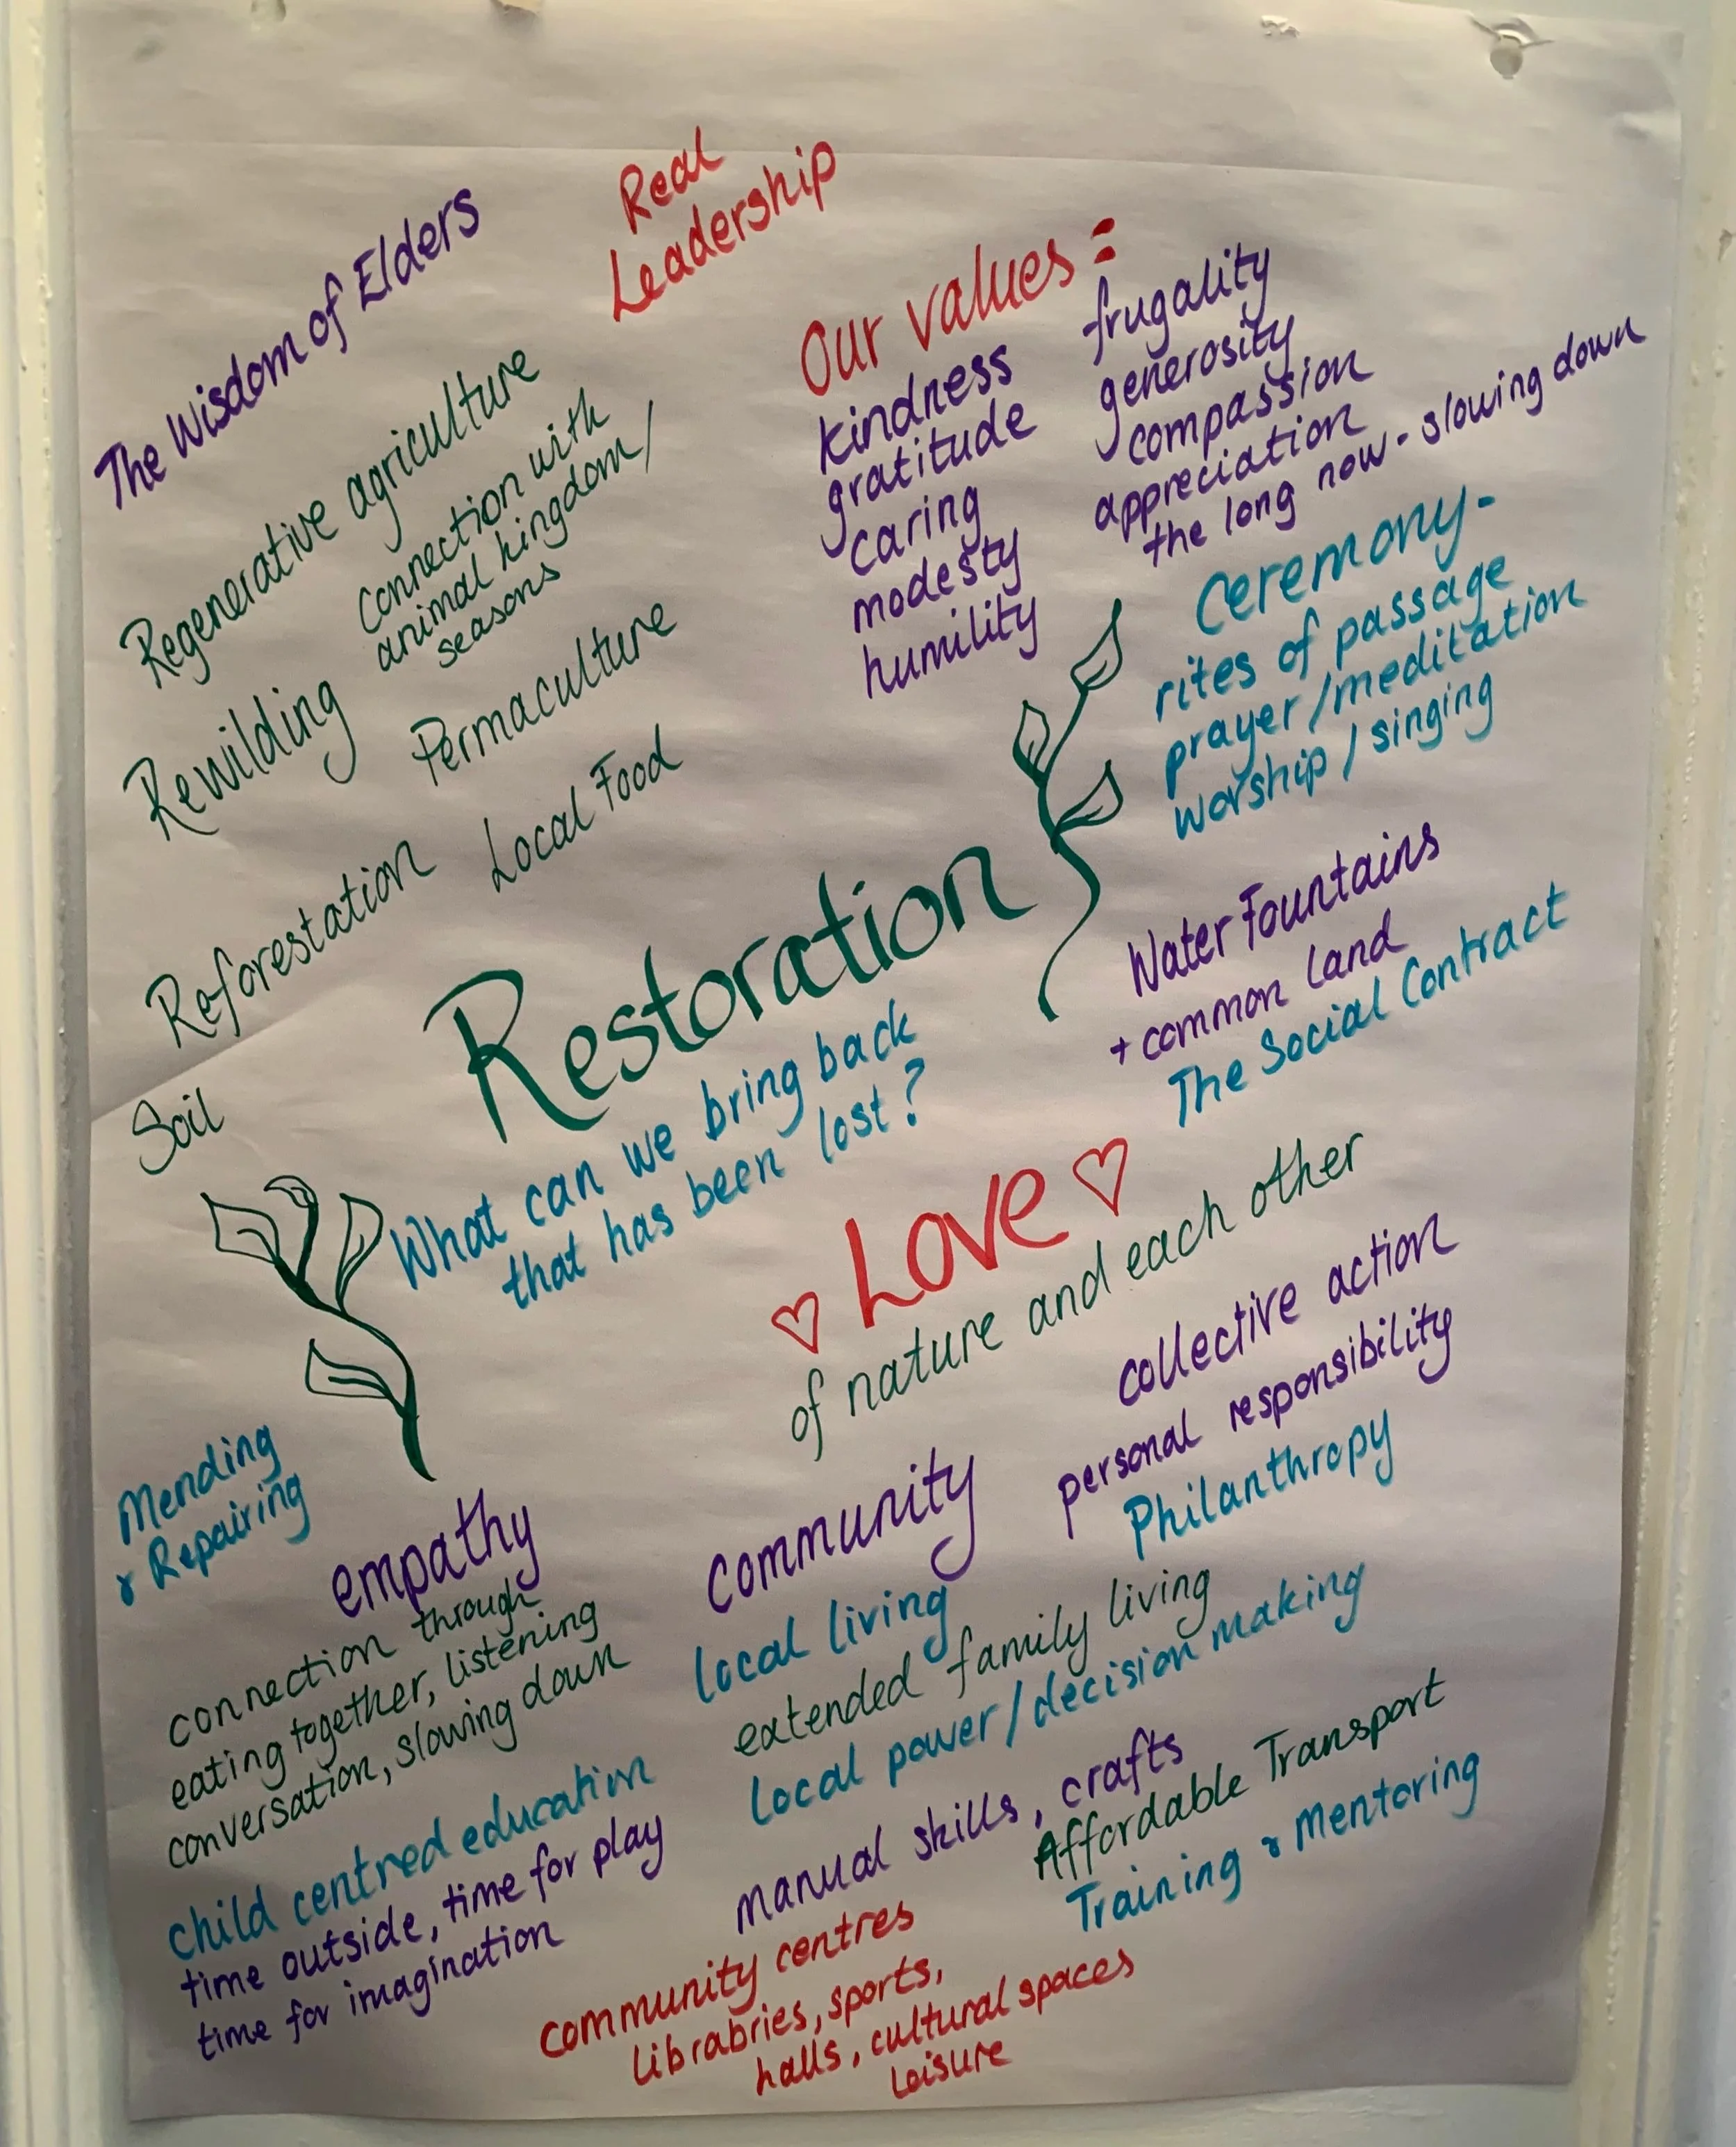 Real
Leadership
The Wisdom of Elders
Our values =
kindness
gratitude
caring
modesty
humility
frugality
generosity
compassion
appreciation
the long now - slowing down
Regenerative agriculture
Connection with
animal kingdom/
seasons
Rewilding
Permaculture
Local Food
Reforestation
Soil
Ceremony-
rites of passage
prayer/meditation
worship/singing
Restoration
What can we bring back
that has been lost?
Water Fountains
+ common land
The Social Contract
♡ Love ♡
of nature and each other
collective action
personal responsibility
Philanthropy
Mending
& Repairing
empathy
connection through
eating together, listening
conversation, slowing down
community
local living
extended family living
local power/decision making
manual skills, crafts
Affordable Transport
Training & Mentoring
child centred education
time outside, time for play
time for imagination
community centres
librabries, sports,
halls, cultural spaces
Leisure